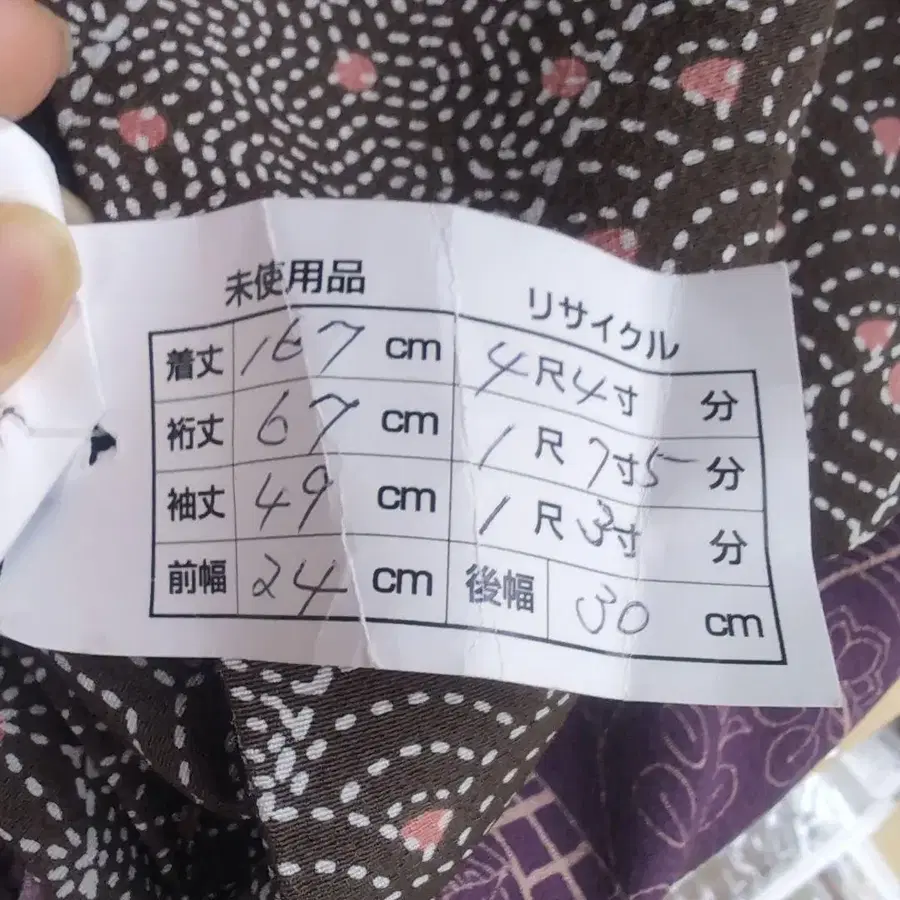 未使用品 リサイクル
着丈 167 cm 4尺4寸 分
裄丈 67 cm 1尺7寸5分
袖丈 49 cm 1尺3寸 分
前幅 24 cm 後幅 30 cm